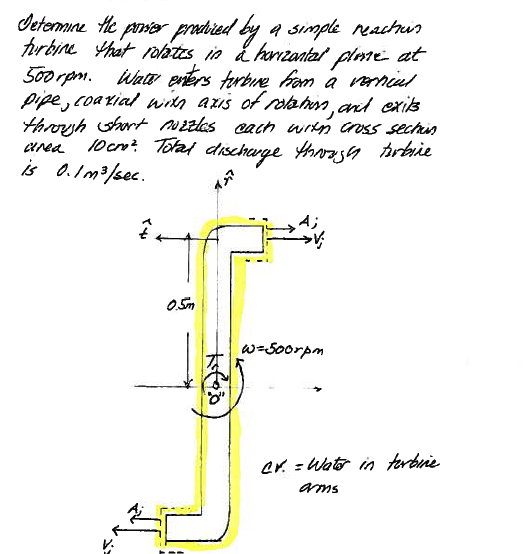 Determine the power produced by a simple reaction
turbine that rotates in a horizontal plane at
500rpm. Water enters turbine from a vertical
pipe, coaxial with axis of rotation, and exits
through short nozzles each with cross section
area 10cm². Total discharge through turbine
is 0.1m³/sec.
r̂
t̂
Aj
Vj
0.5m
ω=500rpm
"O"
C.V. = Water in turbine
arms
Aj
Vj